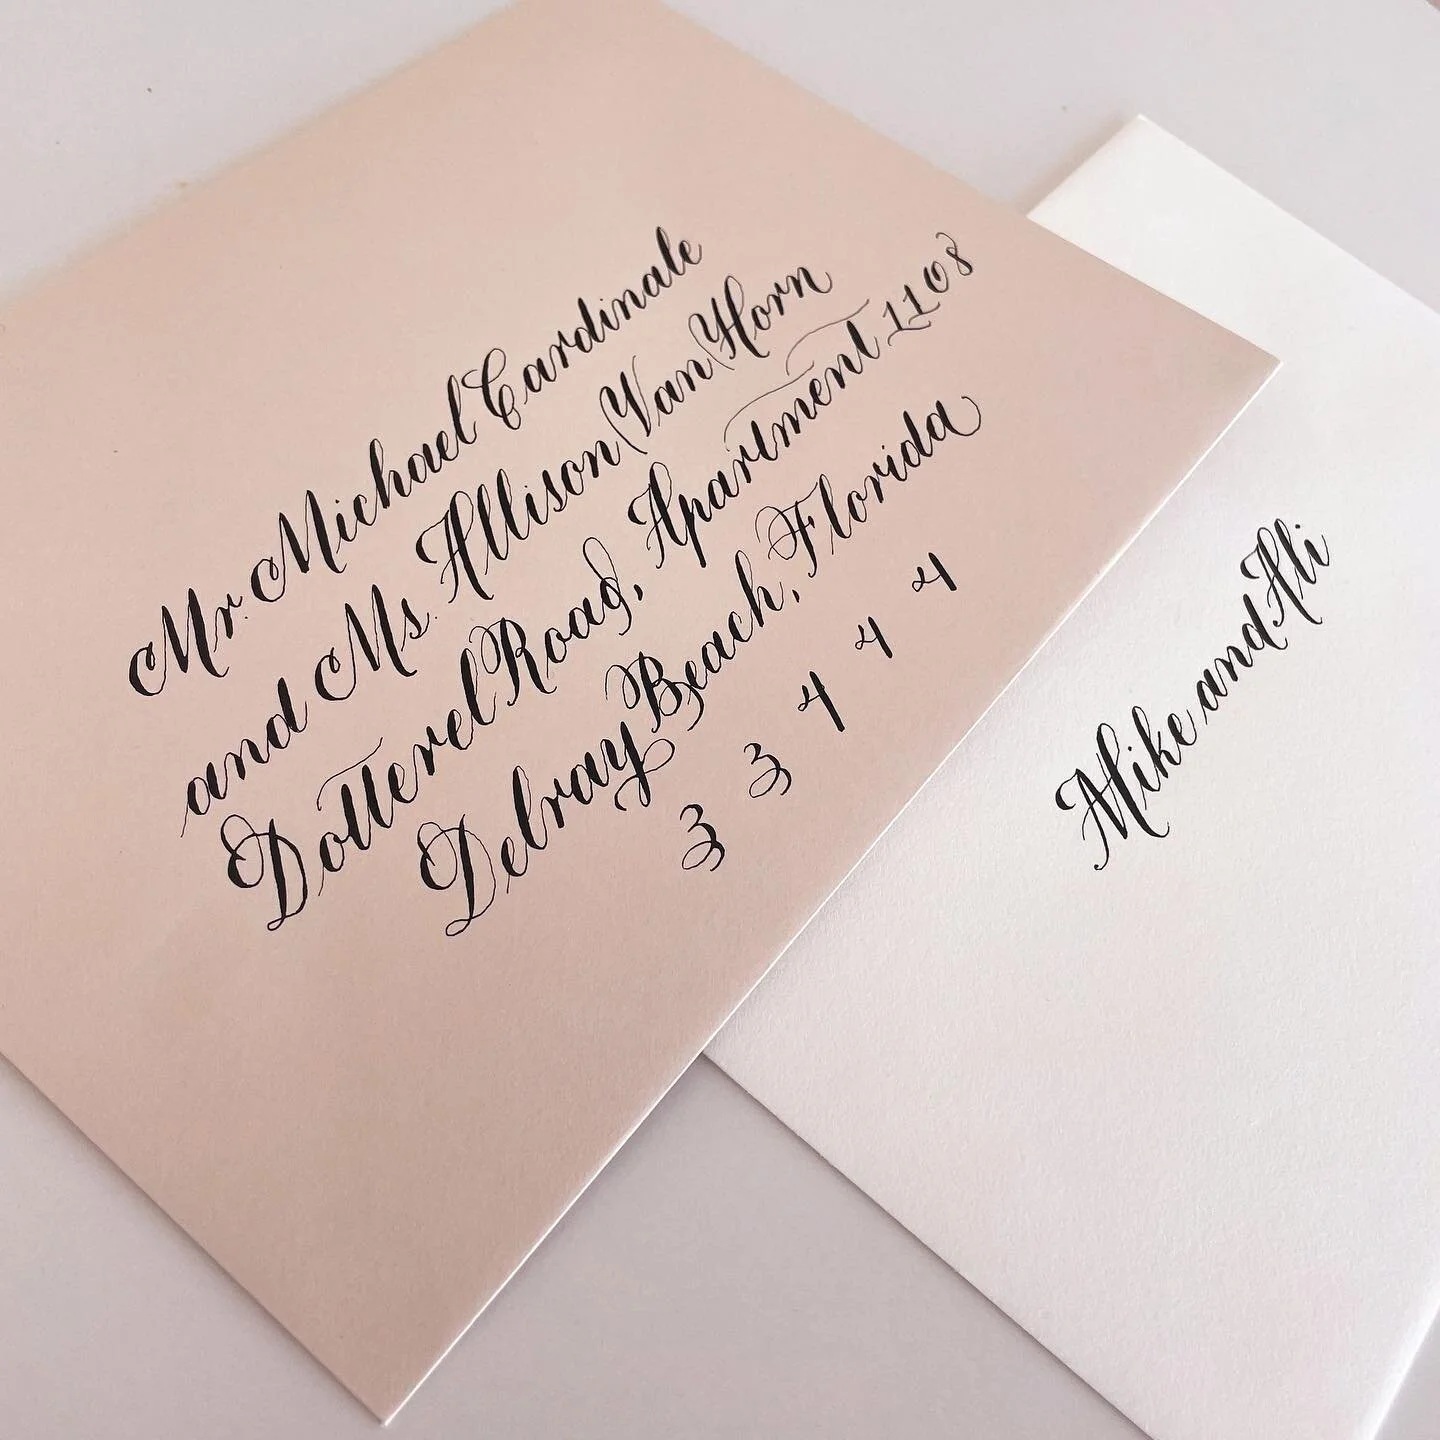 Mr. Michael Cardinale
and Ms. Allison Van Horn
Dotterel Road, Apartment 1108
Delray Beach, Florida
3 3 4 4 4
Mike and Ali